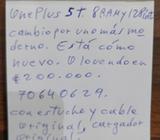 OnePlus 5T 8RAM y 128
cambio por uno más mo
derno. Está cómo
nuevo. O lo vendo en
$200.000.
70640629.
con estuche y cable
original, cargador
original